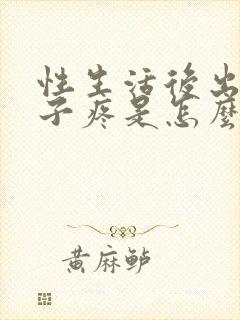 性生活後出
子疼是怎麼
黃麻鲈